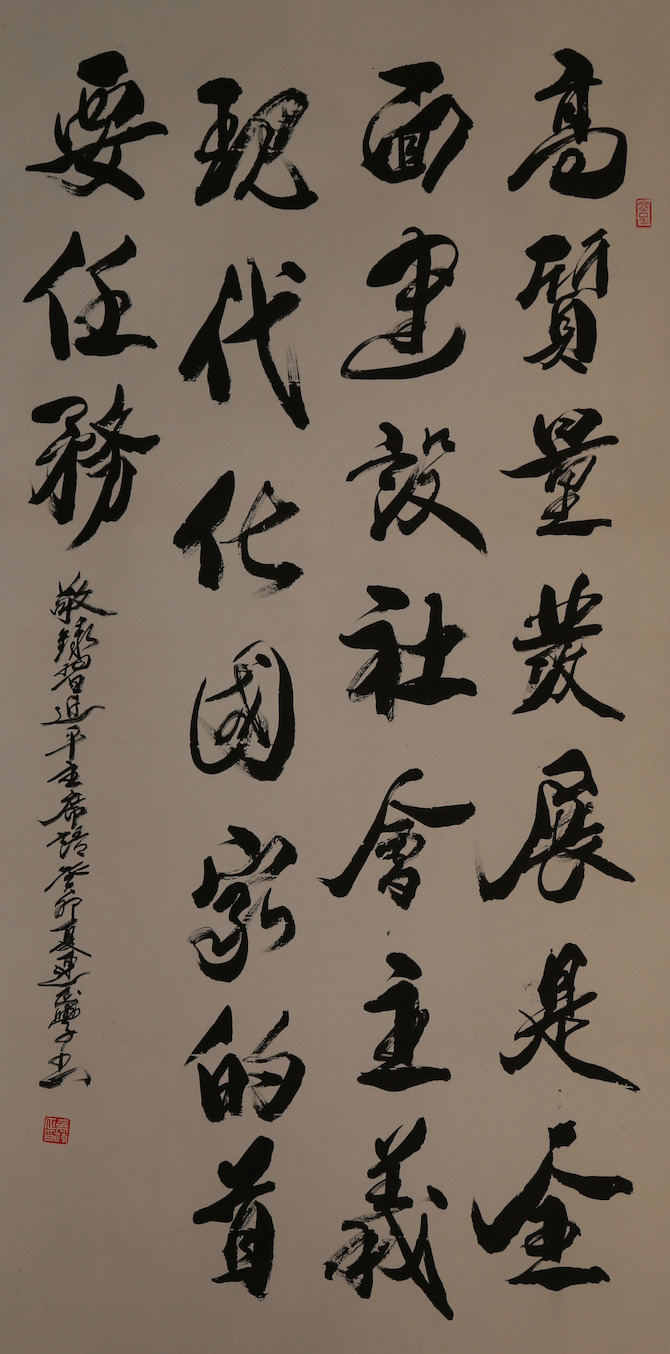 高質量發展是全
面建設社會主義
現代化國家的首
要任務
敬錄習近平主席語癸卯夏建民學書